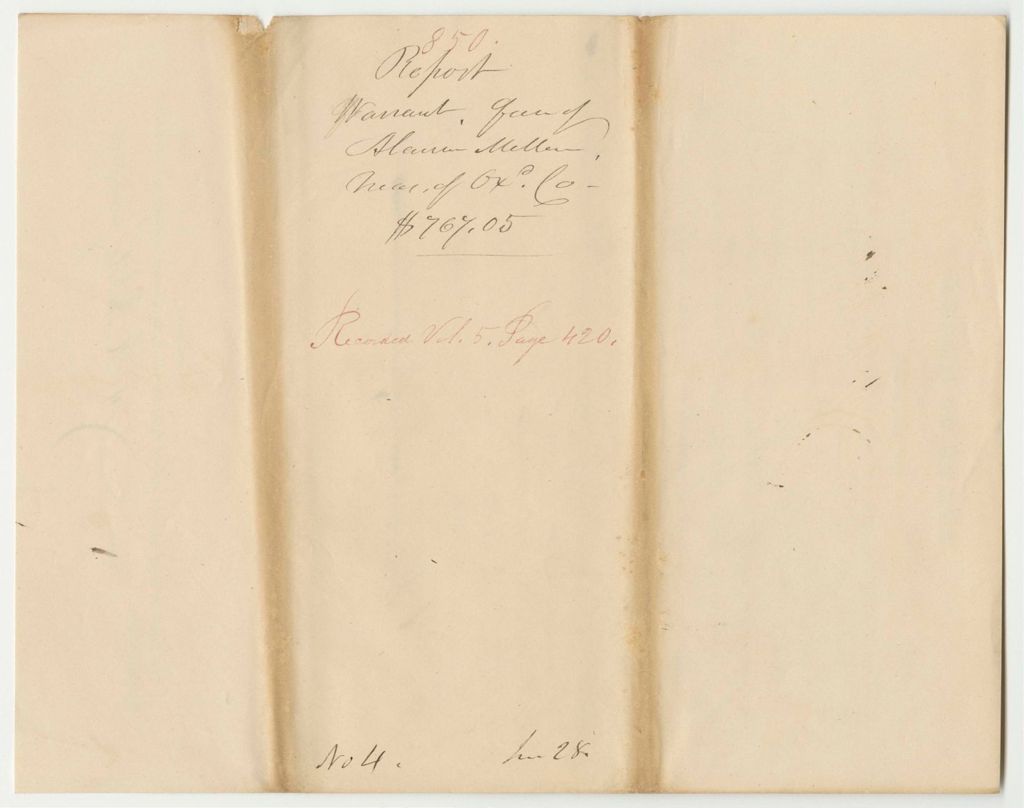 850.
Report
Warrant, favor of
Alanson Mellen,
Treas. of Oxd. Co-
$767.05
Recorded Vol. 5. Page 420.
No 4. 28